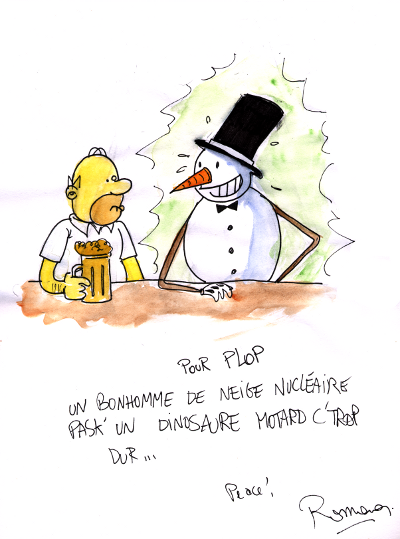 POUR PLOP
UN BONHOMME DE NEIGE NUCLÉAIRE
PASK' UN DINOSAURE MOTARD C'TROP
DUR...
Peace!